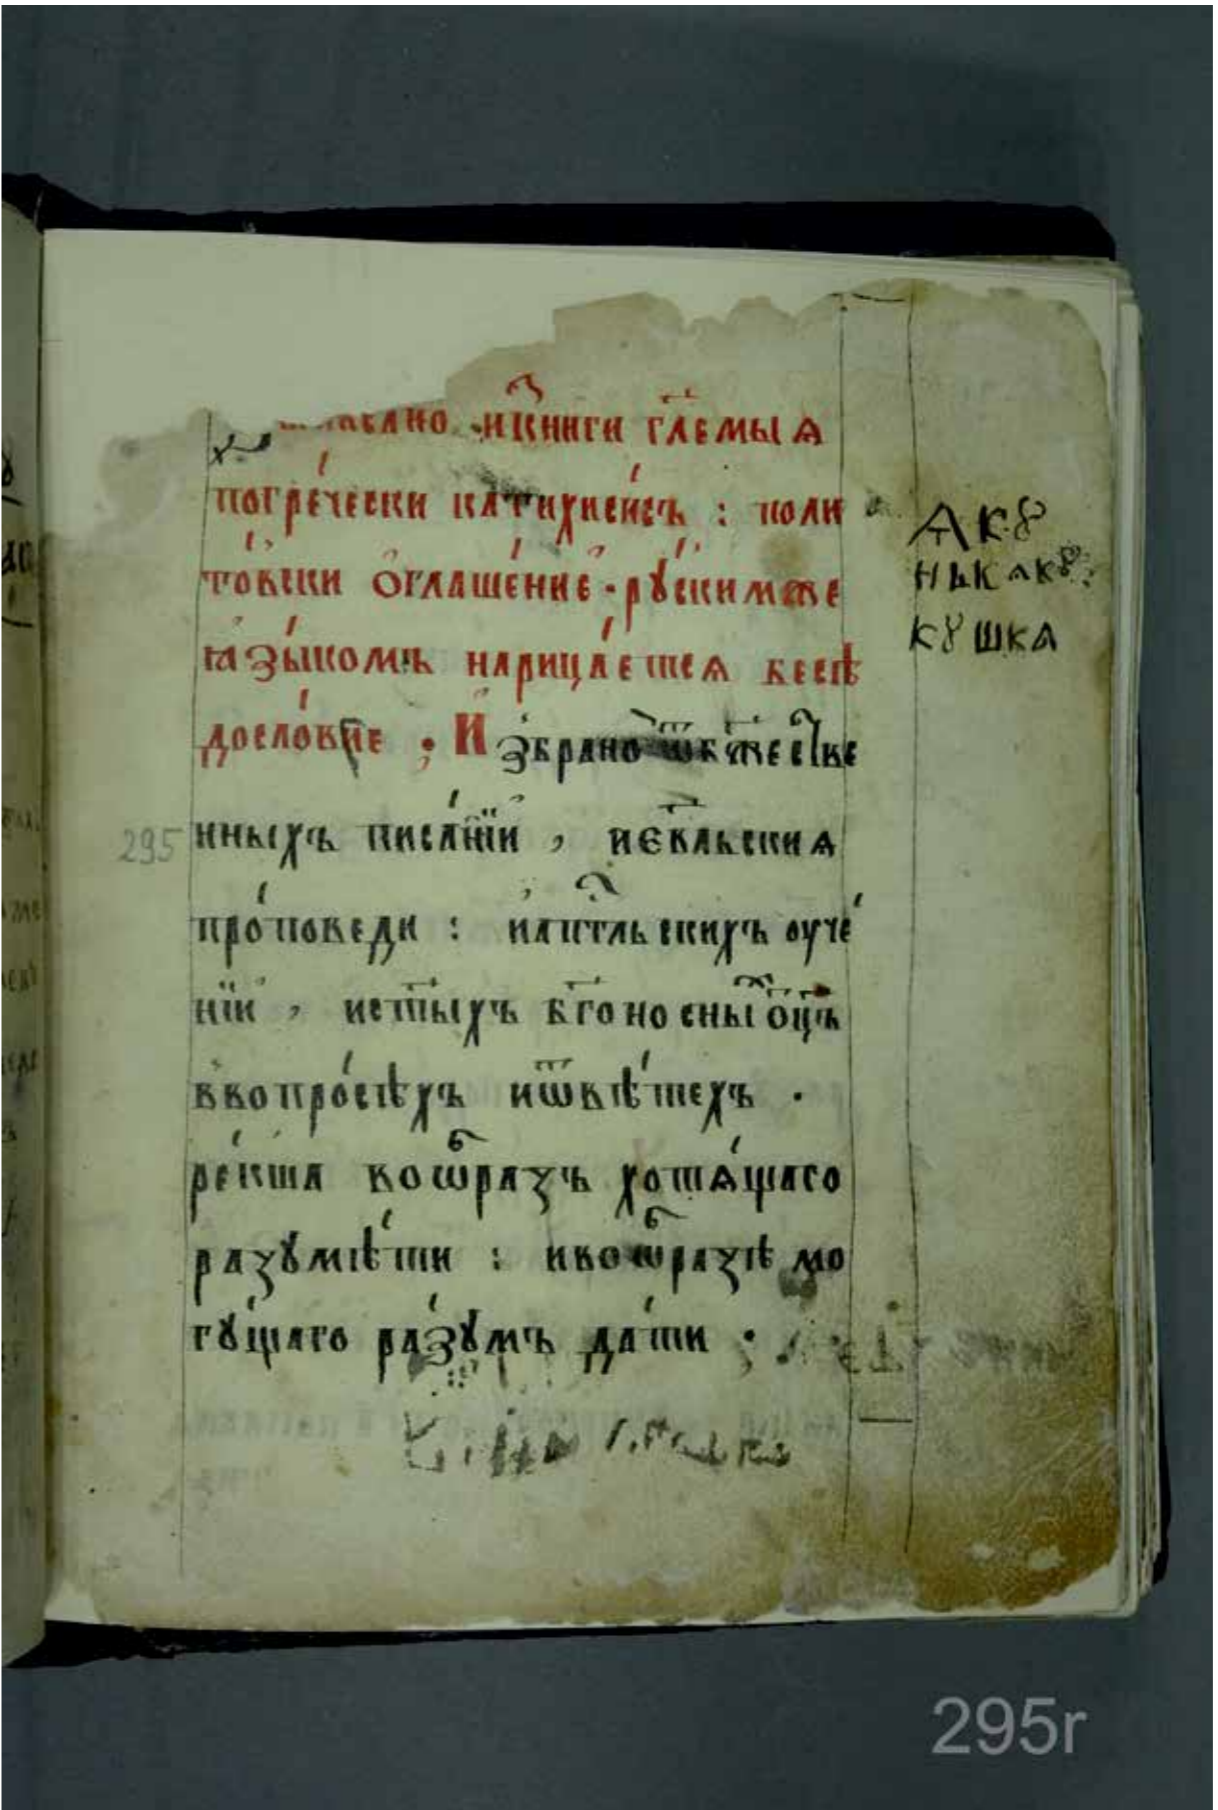 иꙁкниги гл҃емыѧ
погре́чески катихиси́съ : поли
то́вски ѻ҆глаше́нїе · рꙋ́скимже
ꙗ҆зы́комъ нарица́етсѧ бесѣ
досло́вие . И҆збрано ѿбж҃еств҃е
нныхъ писа́нїи , иев҃льскиѧ
про́поведи : иап҃с̑тльскихъ оуче́
нїи , ист҃ыхъ бг҃оносныⷯ ѻц҃ъ
ввопро́сѣхъ иѿвѣ́техъ .
ре́кша воѡ̑бразъ хотѧ́щаго
разꙋмѣ́ти : ивоѡ̑бразѣ мо
гꙋ́щаго ра́зꙋмъ да́ти .
ѦКꙋ
КꙋШКА
295
295r